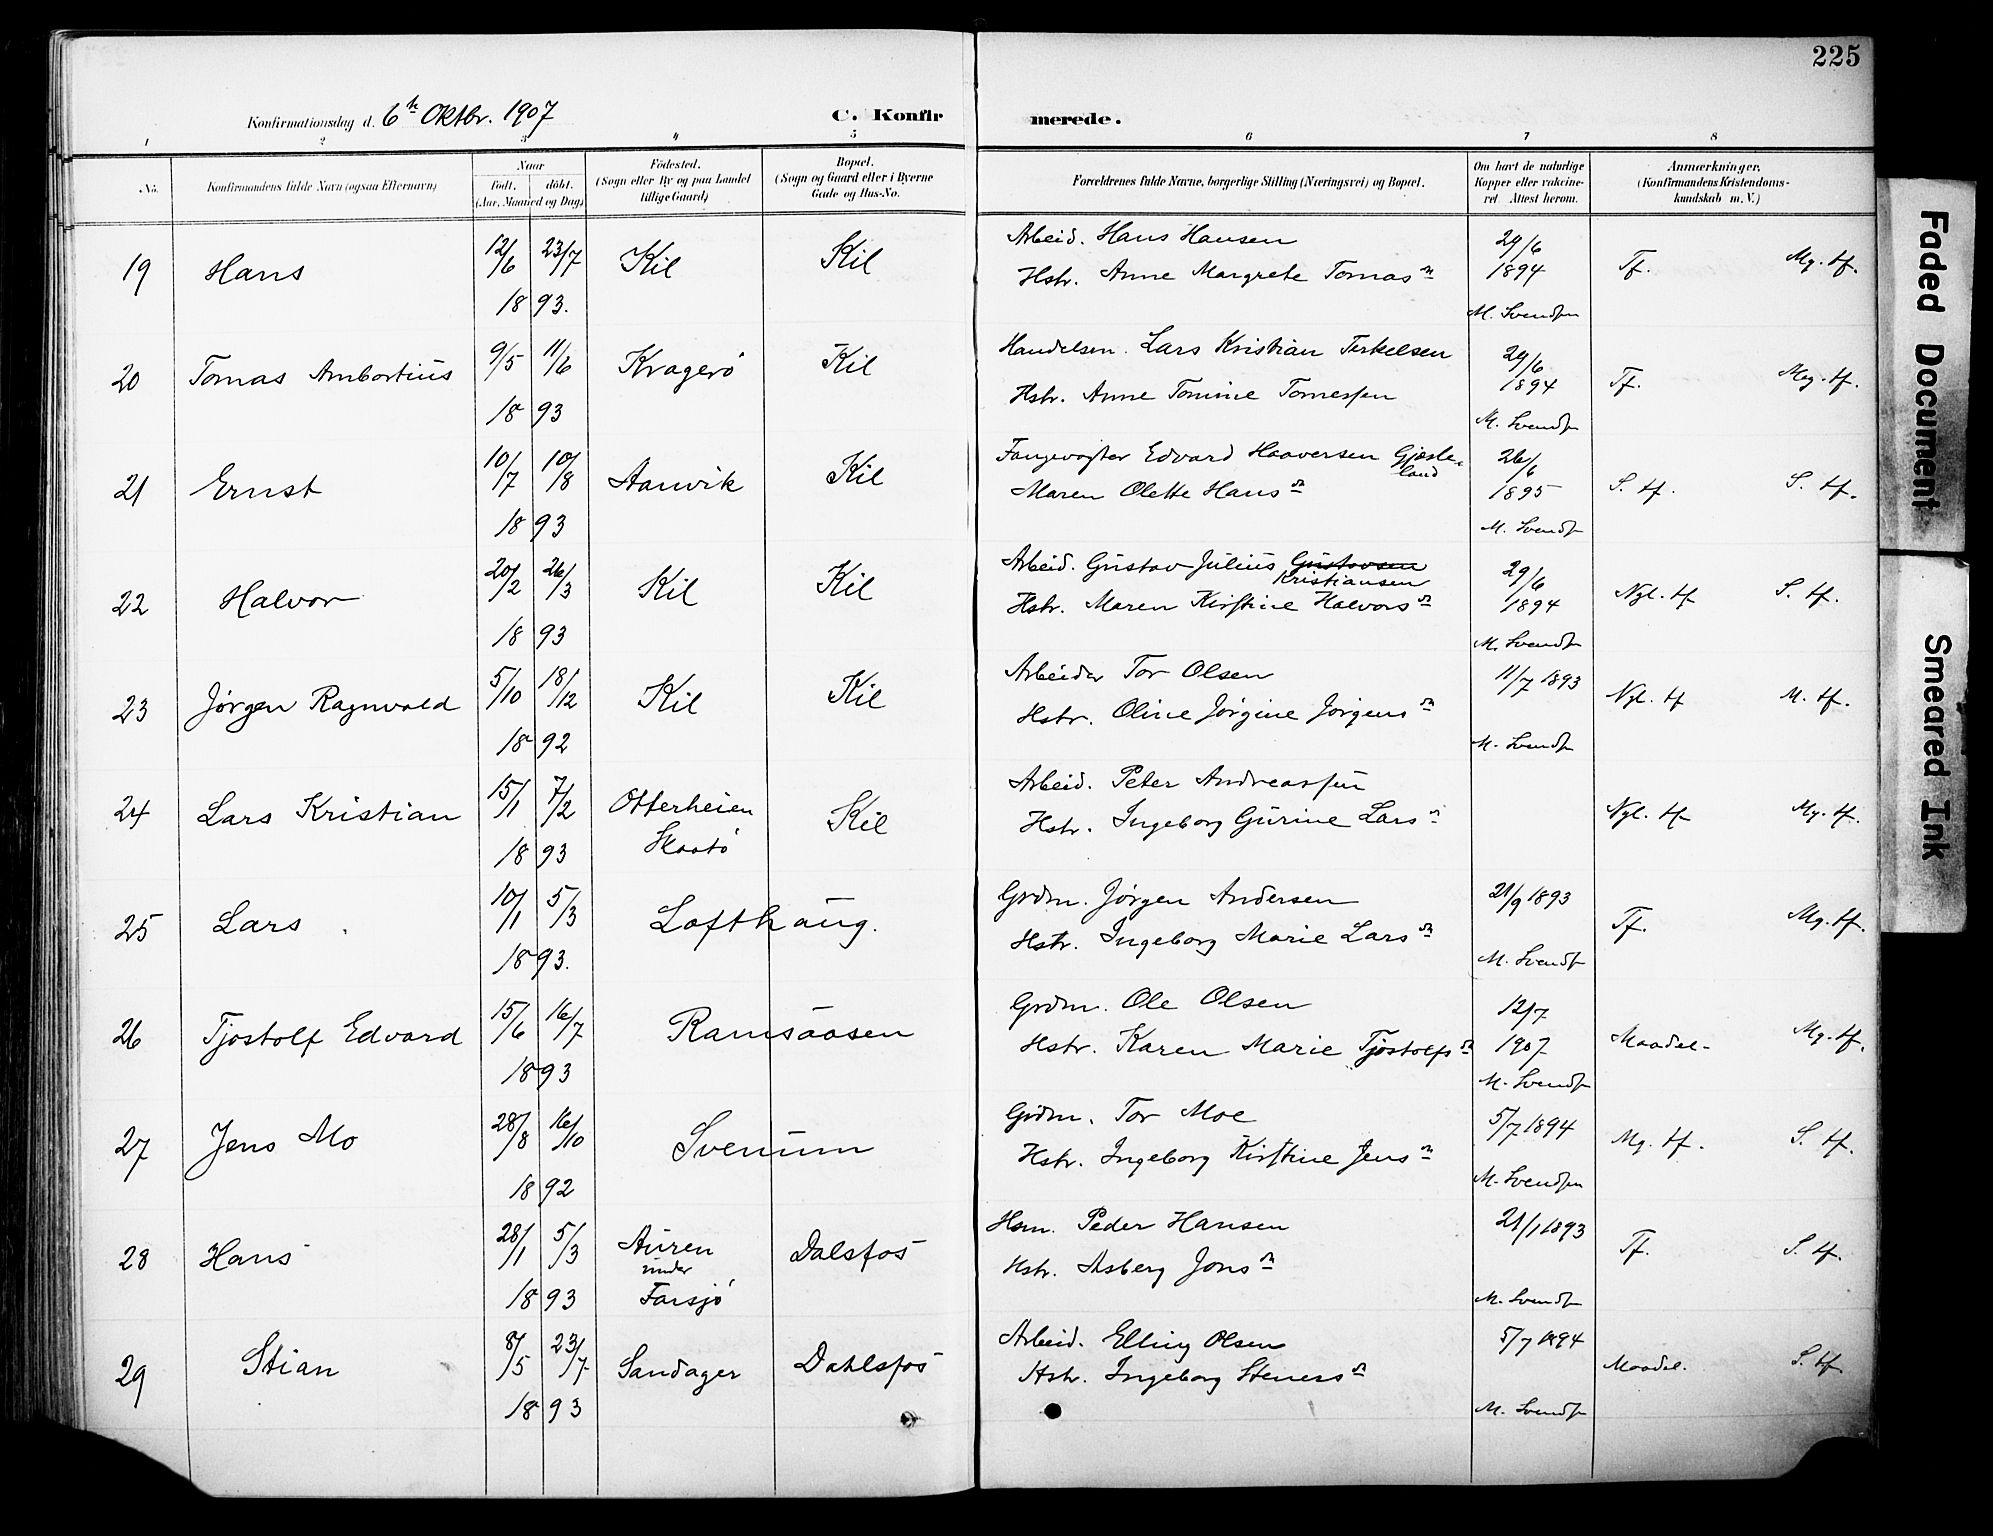 225
Konfirmationsdag d. 6te Oktbr. 1907
C. Konfirmerede.
1 2 3 4 5 6 7 8
No.
Konfirmandens fulde Navn (ogsaa Efternavn)
Naar
födt. döbt.
(Aar, Maaned og Dag)
Födested.
(Sogn eller By og paa Landet
tillige Gaard)
Bopæl.
(Sogn og Gaard eller i Byerne
Gade og Hus-No.
Forældrenes fulde Navne, borgerlige Stilling (Næringsvei) og Bopæl.
Om havt de naturlige
Kopper eller vakcine-
ret. Attest herom.
Anmærkninger.
(Konfirmandens Kristendoms-
kundskab m. V.)
19 Hans 12/6 23/7 1893. Kil Kil
Arbeid. Hans Hansen
Hstr. Anne Margrete Tomasdr
29/6
1894
M. Svendsen
Tf. Mg. tf.
20 Tomas Ambortius 9/5 11/6 1893 Kragerö Kil
Handelsm. Lars Kristian Terkelsen
Hstr. Anne Tomine Tomessen
29/6
1894
M. Svends
Tf. Meg. tf.
21 Ernst 10/7 10/8 1893 Aanvik Kil
Fangevogter Edvard Haaversen Gjøsle-
land
Maren Olette Hansdr
26/6
1895
M. Svends
S. tf. S. tf.
22 Halvor 20/2 26/3 1893 Kil Kil
Arbeid. Gustav Julius Gustavsen
Kristiansen
Hstr. Maren Kirstine Halvorsdr
29/6
1894
M. Svends
Ngl. tf S. tf.
23 Jörgen Ragnvald 5/10 18/12 1892 Kil Kil
Arbeider Tor Olsen
Hstr. Oline Jörgine Jörgensdr
11/7 1893
M. Svends
Ngl. tf M. tf.
24 Lars Kristian 15/1 7/2 1893 Otterheien
Skaatö
Kil
Arbeid. Peter Andreassen
Hstr. Ingeborg Gurine Larsdr
Ngl. tf Mg. tf.
25 Lars 10/1 5/3 1893. Lofthaug.
Grdm. Jörgen Andersen
Hstr. Ingeborg Marie Larsdr
21/9 1893
M. Svends
Tf. Mg. tf.
26 Tjöstolf Edvard 15/6 16/7 1893 Ramsaasen
Grdm. Ole Olsen
Hstr. Karen Marie Tjöstolfsdr
12/7
1907
M. Svends
Maadel- Mg. tf.
27 Jens Mo 28/8 16/10 1892 Svenum
Grdm. Tor Moe
Hstr. Ingeborg Kirstine Jensdr
5/7 1894
M. Svendsen
Mg. tf. S. tf.
28 Hans 28/1 5/3 1893 Auren
under
Farsjö
Dalsfos
Hsm. Peder Hansen
Hstr. Asberg Jonsdr
21/1 1893
M. Svends
Tf. S. tf.
29 Stian 8/5 23/7 1893 Sandager Dahlsfos
Arbeid. Elling Olsen
Hstr. Ingeborg Stenersdr
5/7 1894
M. Svends
Maadel. S. tf
Faded Document
Smeared Ink